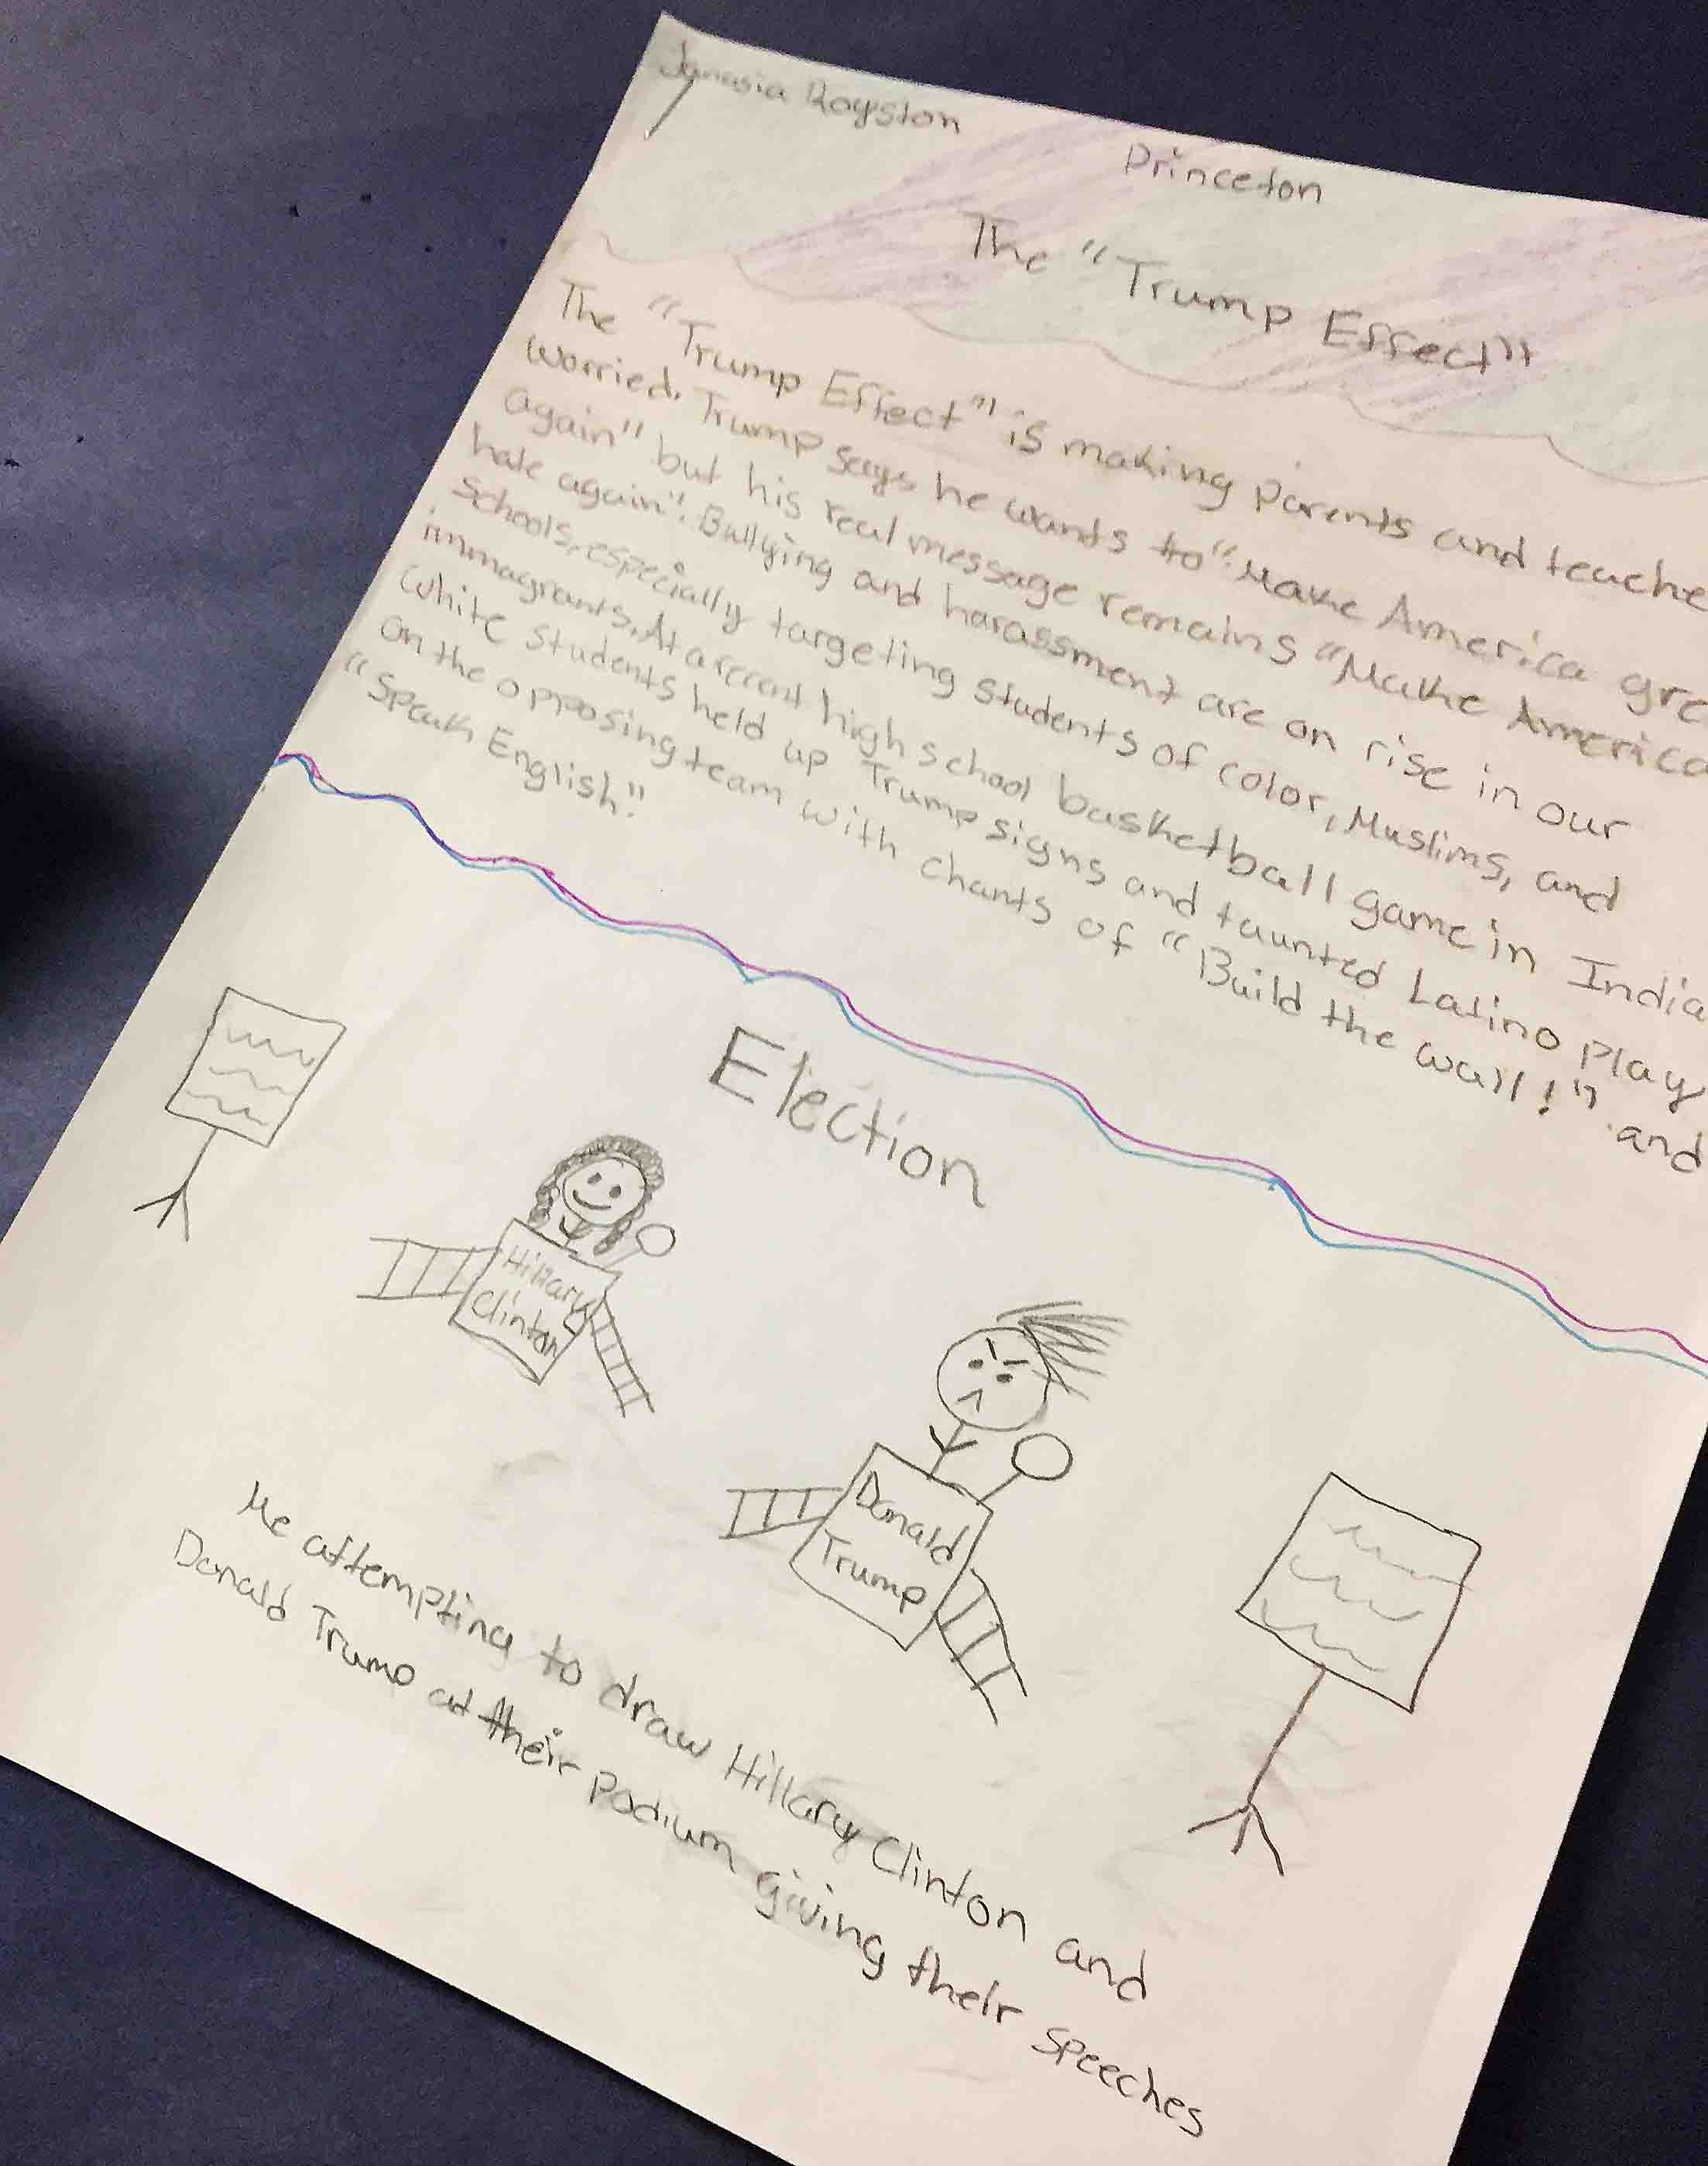 Janasia Royston
Princeton
The "Trump Effect"
The "Trump Effect" is making parents and teache
worried. Trump says he wants to "Make America gre
again" but his real message remains "Make America
hate again". Bullying and harassment are on rise in our
schools, especially targeting students of color, Muslims, and
immagrants. At a recent high school basketball game in India
white students held up Trump signs and taunted Latino play
on the opposing team with chants of "Build the wall!" and
"Speak English"!
Election
Hillary
Clinton
Donald
Trump
Me attempting to draw Hillary Clinton and
Donald Trump at their podium giving their speeches